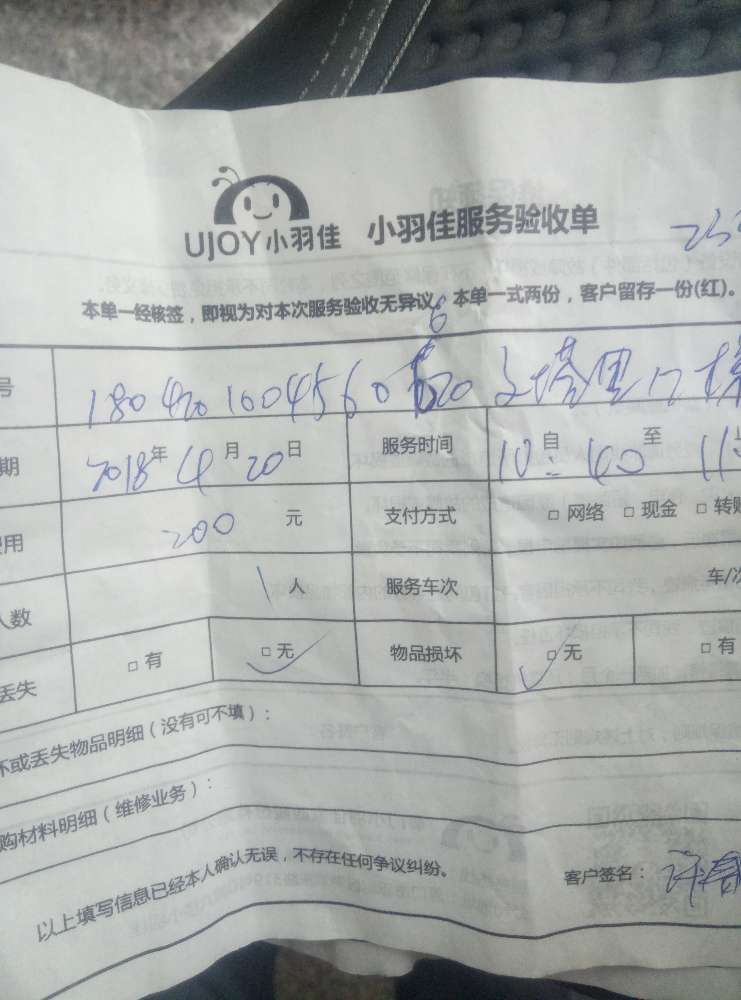 UJOY小羽佳 小羽佳服务验收单
本单一经核签，即视为对本次服务验收无异议。本单一式两份，客户留存一份(红)。
号
期 2018年4月20日 服务时间 10自:40至11
费用 200元 支付方式 □ 网络 □ 现金 □ 转账
人数 1人 服务车次 车/次
丢失 □ 有 □ 无 物品损坏 □ 无 □ 有
坏或丢失物品明细（没有可不填）：
购材料明细（维修业务）：
以上填写信息已经本人确认无误，不存在任何争议纠纷。 客户签名：许